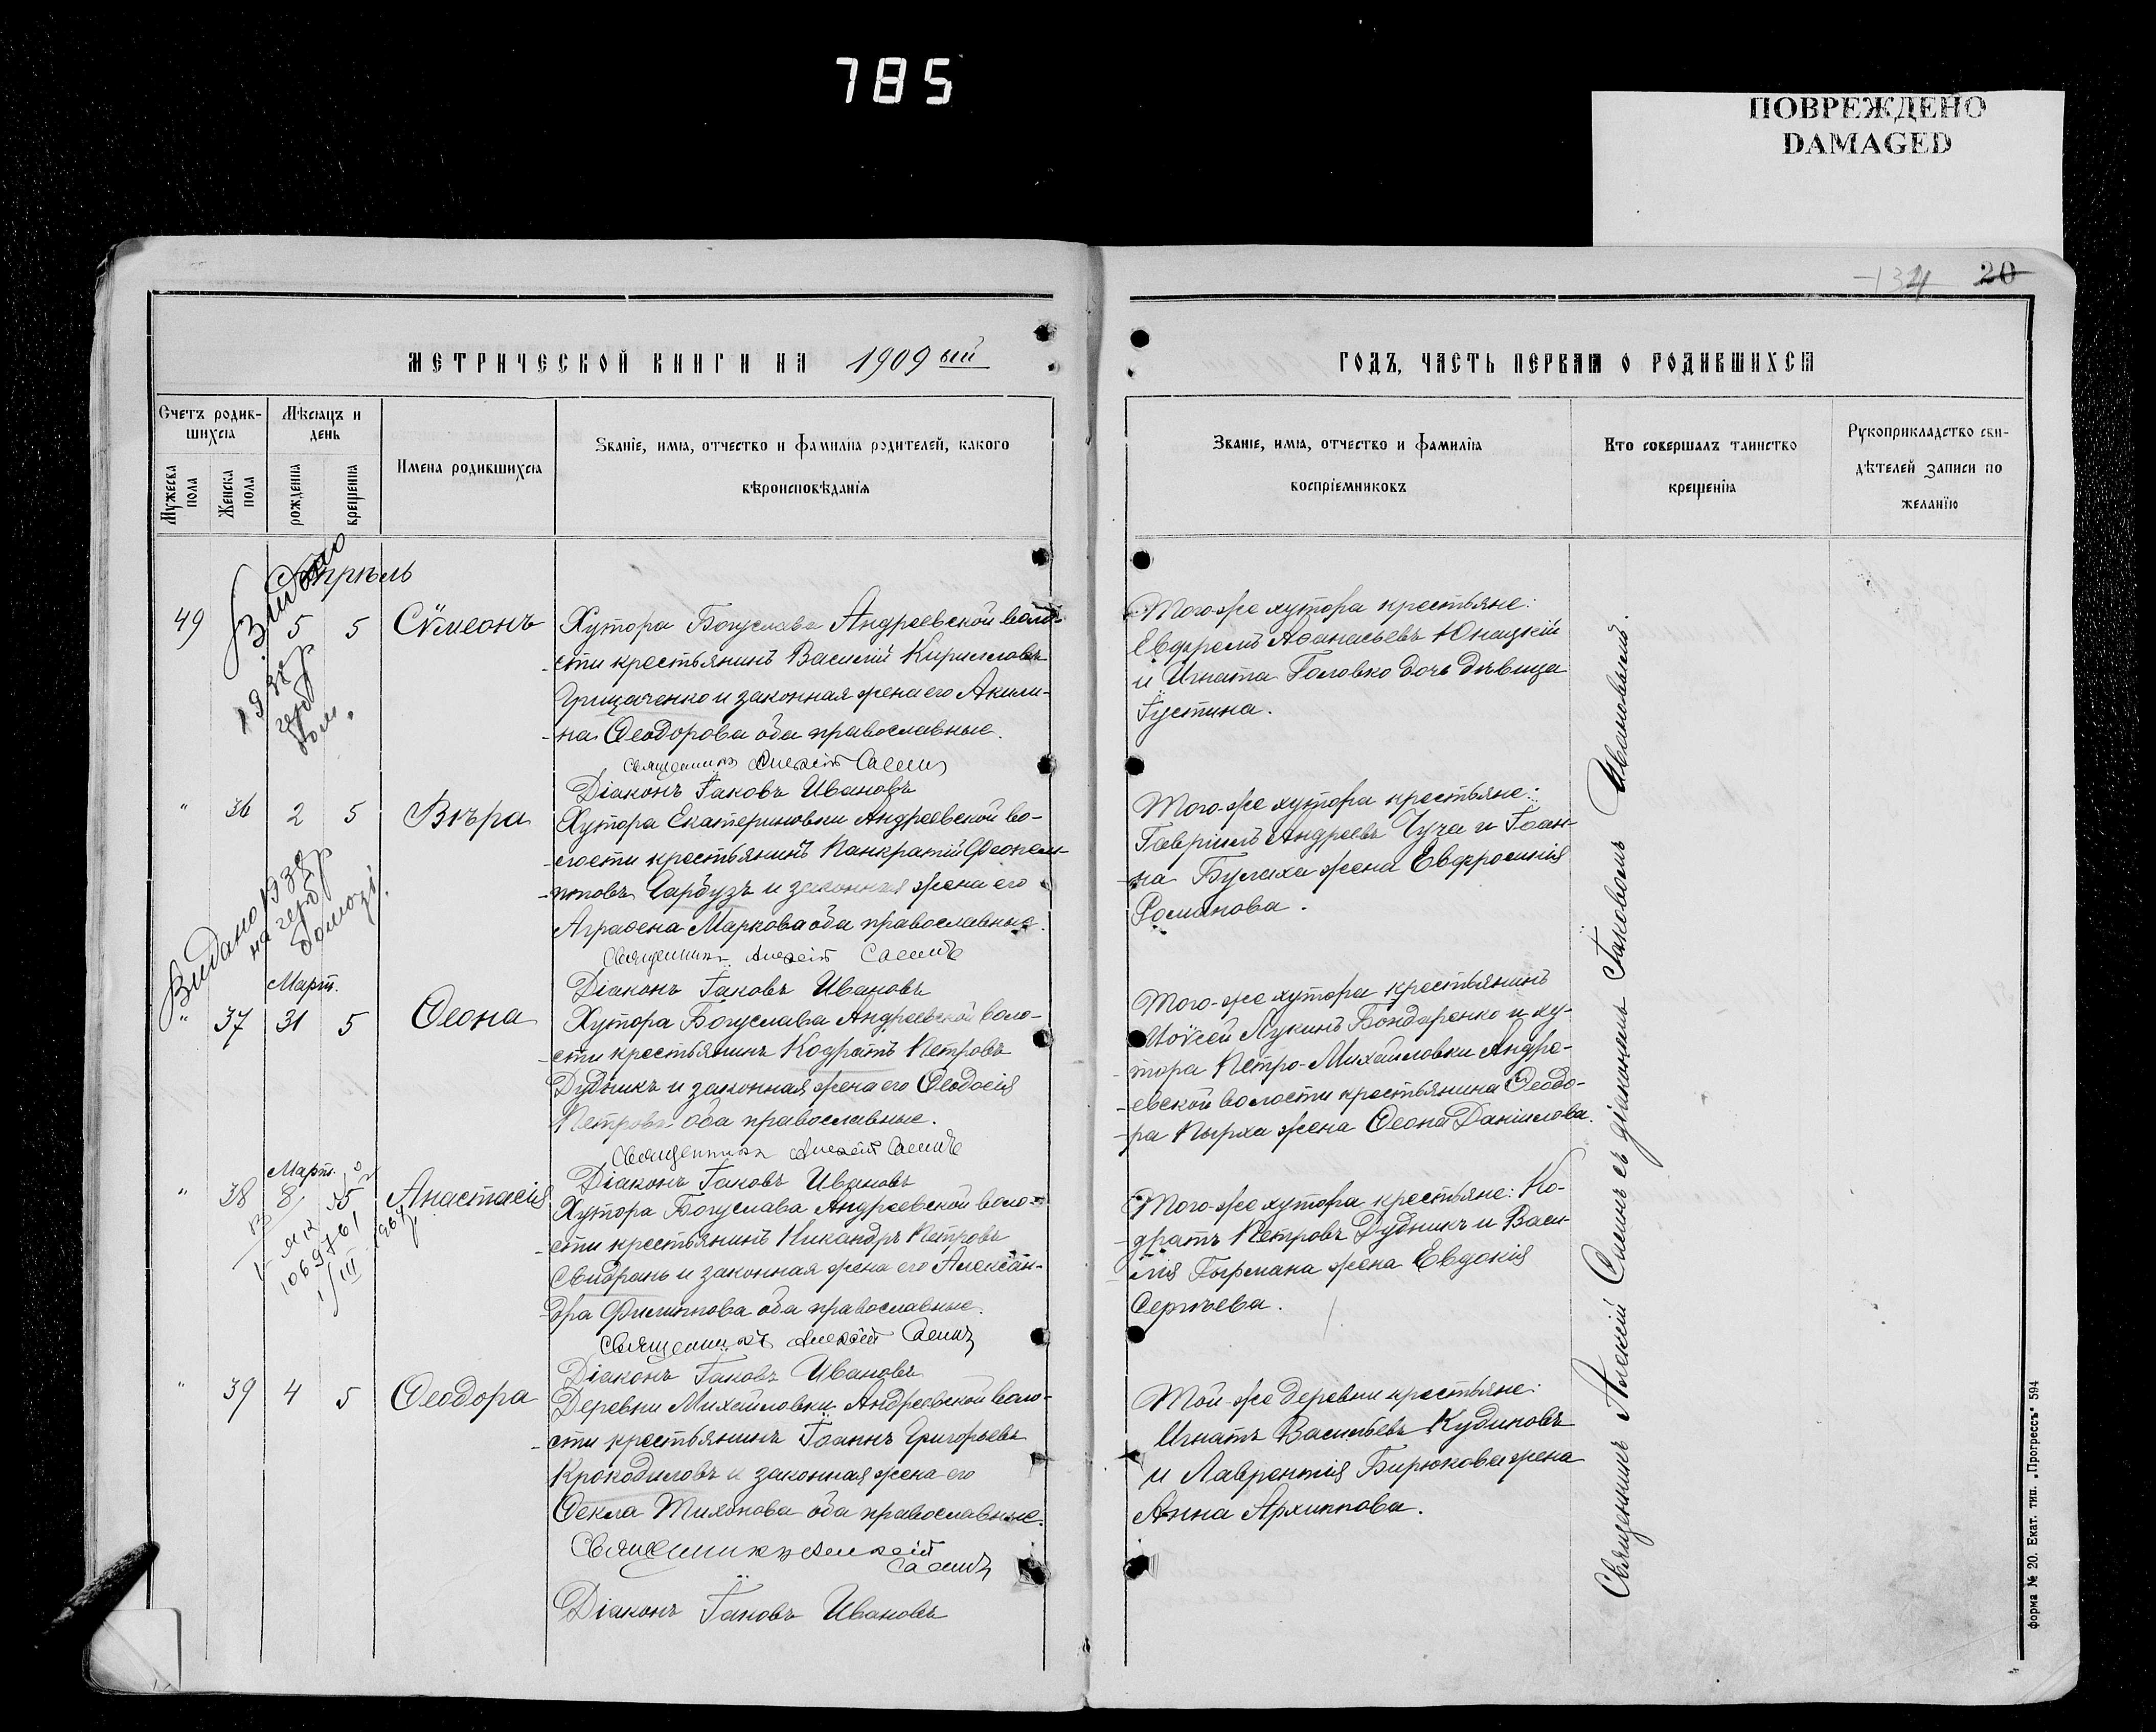 785
ПОВРЕЖДЕНО
DAMAGED
134 20
МЕТРИЧЕСКОЙ КНИГИ НА 1909 ый
ГОДЪ, ЧАСТЬ ПЕРВАЯ О РОДИВШИХСЯ
Счетъ родив-
шихся
Мѣсяцъ и
день
Мужеска пола
Женска пола
рожденія
крещенія
Имена родившихся
Званіе, имя, отчество и фамилія родителей, какого
вѣроисповѣданія
Званіе, имя, отчество и фамилія
воспріемниковъ
Кто совершалъ таинство
крещенія
Рукоприкладство сви-
дѣтелей записи по
желанію
Апрѣль
49 5 5 Сѵмеонъ
Видано
193
герб
Хутора Богуслава Андреевской воло-
сти крестьянинъ Василій Кирилловъ
Грицаченко и законная жена его Акили-
на Ѳеодорова оба православные.
Священникъ Алексій
Діаконъ Іаковъ Ивановъ
Того-же хутора крестьяне:
Евфремъ Аѳанасьевъ Юнацкій
и Игната Головко дочь дѣвица
Іустина.
" 36 2 5 Вѣра
Видано 1938 р
на герб
Хутора Екатериновки Андреевской во-
лости крестьянинъ Панкратій Ѳеопем-
птовъ Гарбузъ и законная жена его
Аграѳена Маркова оба православные.
Священникъ Алексій
Діаконъ Іаковъ Ивановъ
Того-же хутора крестьяне:
Гавріилъ Андреевъ Чуча и Іоан-
на Булаха жена Евфросинія
Романова.
Март.
" 37 31 5 Ѳеона
Хутора Богуслава Андреевской воло-
сти крестьянинъ Кодратъ Петровъ
Дудникъ и законная жена его Ѳеодосія
Петрова оба православные.
Священникъ Алексій
Діаконъ Іаковъ Ивановъ
Того-же хутора крестьянинъ
Моѵсей Лукинъ Бондаренко и ху-
тора Петро-Михайловки Андре-
евской волости крестьянина Ѳеодо-
ра Пырха жена Ѳеона Даніилова.
Март.
" 38 8 5 Анастасія
1069761
1/III 1964
Хутора Богуслава Андреевской воло-
сти крестьянинъ Никандръ Петровъ
Свидранъ и законная жена его Алексан-
дра Филиппова оба православные.
Священникъ Алексій
Діаконъ Іаковъ Ивановъ
Того-же хутора крестьяне: Ко-
дратъ Петровъ Дудникъ и Васи-
лія Гырмана жена Евдокія
Сергѣева.
" 39 4 5 Ѳеодора
Деревни Михайловки Андреевской воло-
сти крестьянинъ Іоаннъ Григорьевъ
Крокодиловъ и законная жена его
Ѳекла Тихонова оба православные.
Священникъ Алексій
Діаконъ Іаковъ Ивановъ
Той-же деревни крестьяне:
Игнатъ Васильевъ Кудиновъ
и Лаврентія Бирюкова жена
Анна Архиппова.
Священникъ Алексій съ діакономъ Іаковомъ Ивановымъ.
форма № 20. Екат. тип. „Прогрессъ“ 594